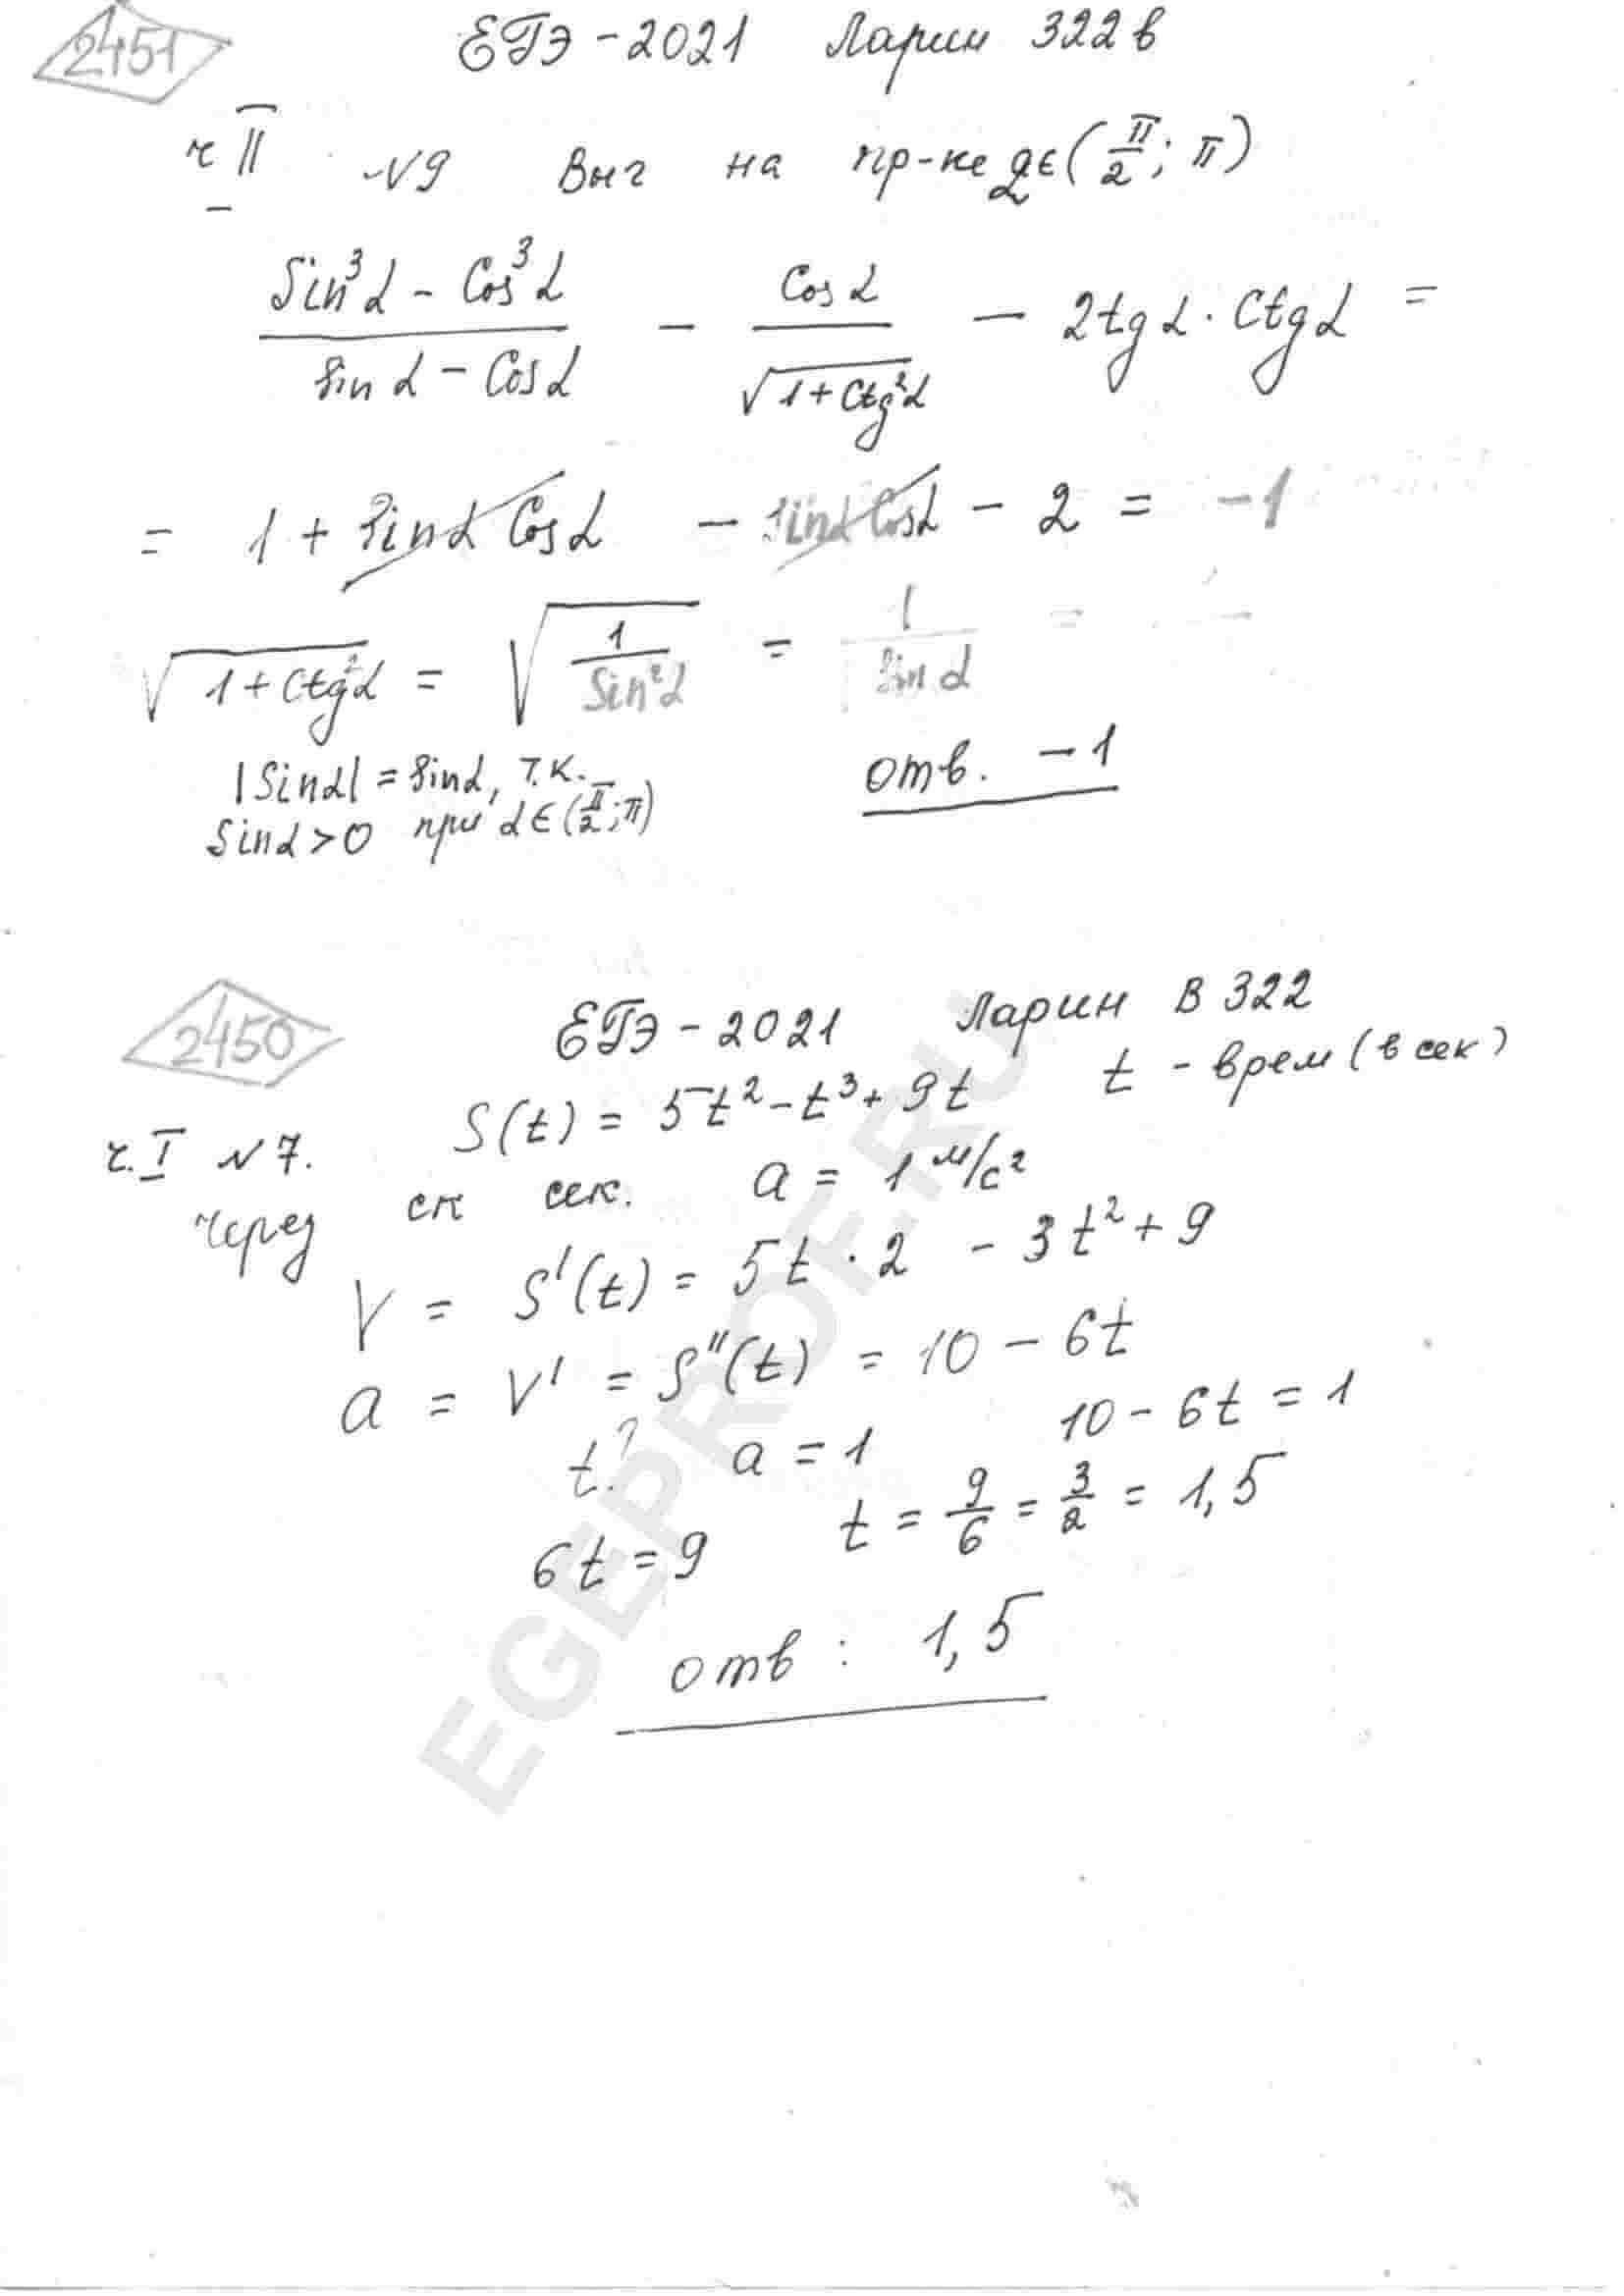 2451
ЕГЭ - 2021 Ларин 322 в
ч II
N9 Выч на пр-ке α∈(π/2; π)
(Sin³α - Cos³α)/(Sinα - Cosα) - Cosα/√(1+Ctg²α) - 2tgα · Ctgα =
= 1 + Sinα Cosα - Sinα Cosα - 2 = -1
√(1+Ctg²α) = √(1/Sin²α) = 1/Sinα =
|Sinα| = Sinα, т.к.
Sinα > 0 при α∈(π/2; π)
отв. -1
2450
ЕГЭ - 2021 Ларин В 322
S(t) = 5t² - t³ + 9t t - врем (в сек)
ч. I N 7.
Через ск сек. a = 1 м/с²
V = S'(t) = 5t · 2 - 3t² + 9
a = V' = S''(t) = 10 - 6t
t? a = 1 10 - 6t = 1
6t = 9 t = 9/6 = 3/2 = 1,5
отв : 1,5
EGEPROF.RU